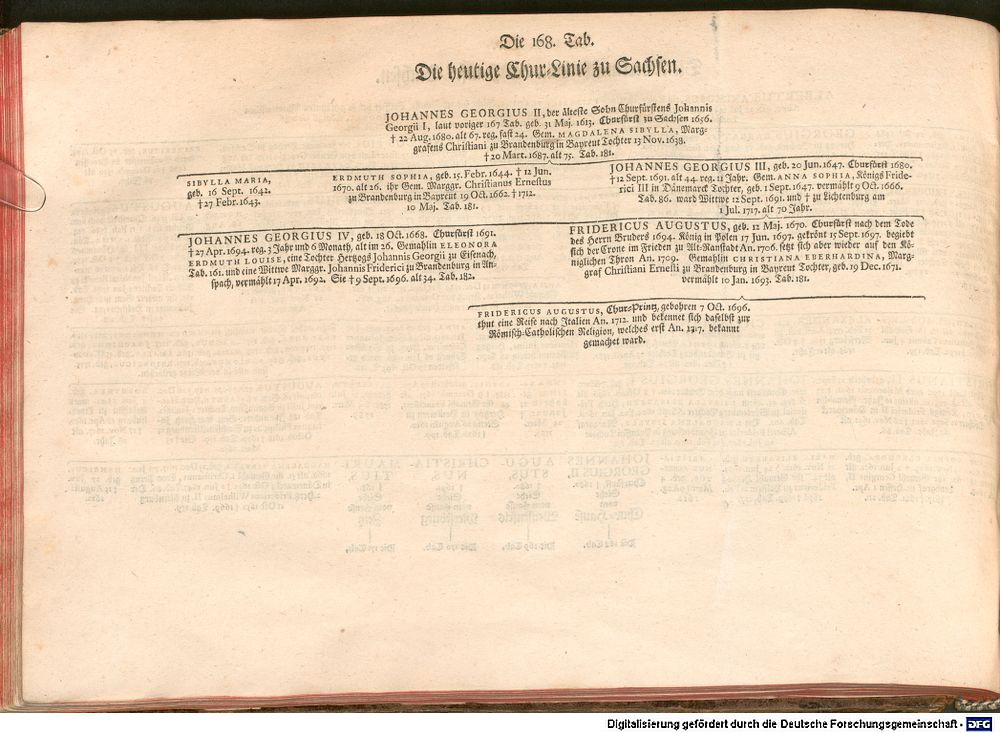 Die 168. Tab.
Die heutige Chur-Linie zu Sachsen.
JOHANNES GEORGIUS II, der älteste Sohn Churfürstens Johannis
Georgii I, laut voriger 167 Tab. geb. 31 Maj. 1613. Churfürst zu Sachsen 1656.
† 22 Aug. 1680. alt 67. reg. fast 24. Gem. MAGDALENA SIBYLLA, Marg-
grafens Christiani zu Brandenburg in Bayreut Tochter 13 Nov. 1638.
† 20 Mart. 1687. alt 75. Tab. 181.
SIBYLLA MARIA,
geb. 16 Sept. 1642.
† 27 Febr. 1643.
ERDMUTH SOPHIA, geb. 15. Febr. 1644. † 12 Jun.
1670. alt 26. ihr Gem. Marggr. Christianus Ernestus
zu Brandenburg in Bayreut 19 Oct. 1662. † 1712.
10 Maj. Tab. 181.
JOHANNES GEORGIUS III, geb. 20 Jun. 1647. Churfürst 1680.
† 12 Sept. 1691. alt 44. reg. 11 Jahr. Gem. ANNA SOPHIA, Königs Fride-
rici III in Dänemarck Tochter, geb. 1 Sept. 1647. vermählt 9 Oct. 1666.
Tab. 86. ward Wittwe 12 Sept. 1691. und † zu Lichtenburg am
1 Jul. 1717. alt 70 Jahr.
JOHANNES GEORGIUS IV, geb. 18 Oct. 1668. Churfürst 1691.
† 27 Apr. 1694. reg. 3 Jahr und 6 Monath, alt im 26. Gemahlin ELEONORA
ERDMUTH LOUISE, eine Tochter Hertzogs Johannis Georgii zu Eisenach,
Tab. 161. und eine Wittwe Marggr. Johannis Friderici zu Brandenburg in An-
spach, vermählt 17 Apr. 1692. Sie † 9 Sept. 1696. alt 34. Tab. 182.
FRIDERICUS AUGUSTUS, geb. 12 Maj. 1670. Churfürst nach dem Tode
des Herrn Bruders 1694. König in Polen 17 Jun. 1697. gekrönt 15 Sept. 1697. begiebt
sich der Crone im Frieden zu Alt-Ranstadt An. 1706. setzt sich aber wieder auf den Kö-
niglichen Thron An. 1709. Gemahlin CHRISTIANA EBERHARDINA, Marg-
graf Christiani Ernesti zu Brandenburg in Bayreut Tochter, geb. 19 Dec. 1671.
vermählt 10 Jan. 1693. Tab. 181.
FRIDERICUS AUGUSTUS, Chur-Printz, gebohren 7 Oct. 1696.
thut eine Reise nach Italien An. 1712. und bekennet sich daselbst zur
Römisch-Catholischen Religion, welches erst An. 1717. bekannt
gemachet ward.
Digitalisierung gefördert durch die Deutsche Forschungsgemeinschaft - DFG